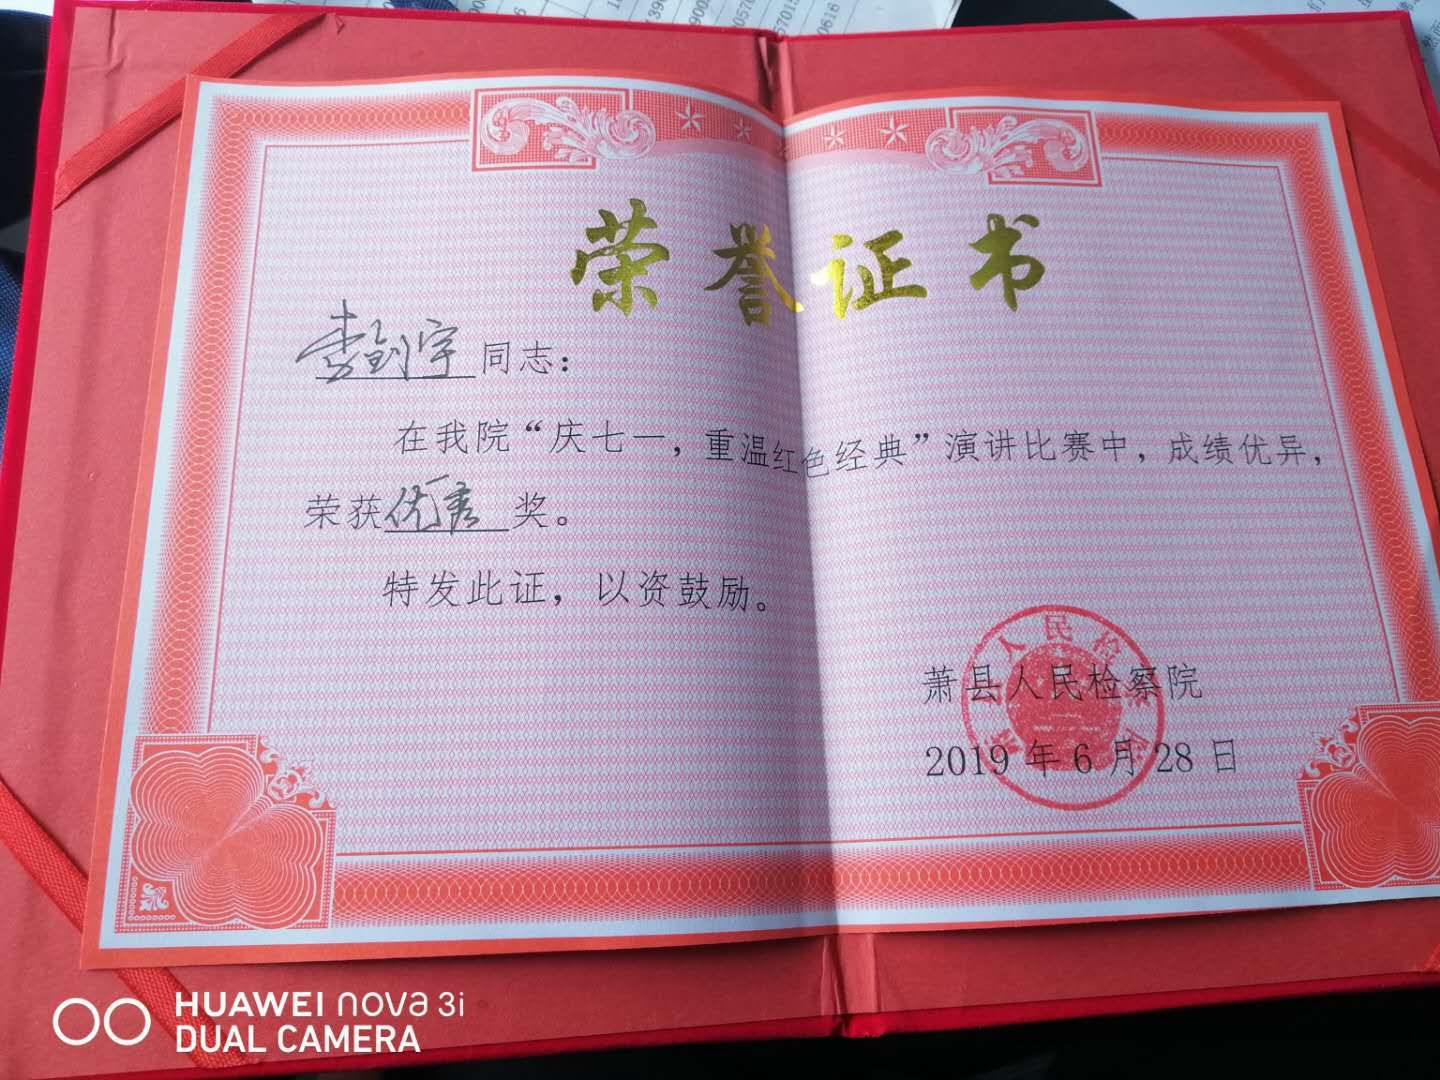 荣誉证书
李剑宇同志：
在我院“庆七一，重温红色经典”演讲比赛中，成绩优异，
荣获优秀奖。
特发此证，以资鼓励。
萧县人民检察院
2019年6月28日
HUAWEI nova 3i
DUAL CAMERA